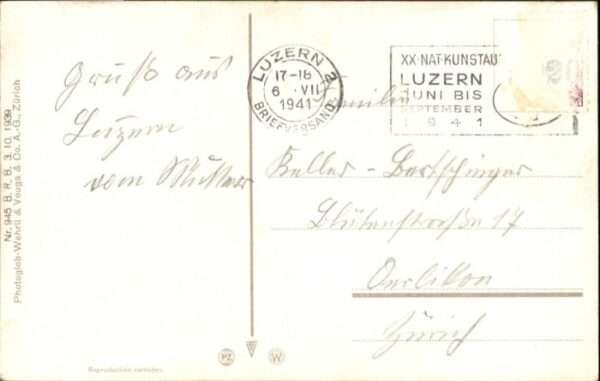 Nr. 945 B. R. B. 3. 10. 1939
Photoglob-Wehrli & Vouga & Co. A.-G., Zürich
Gruß aus
Luzern
vom Mutter
LUZERN 2
17-18
6. VII
1941
BRIEFVERSAND
XX·NAT·KUNSTAU
LUZERN
JUNI BIS
SEPTEMBER
1941
Familie
Keller - Bertschinger
Blütenstraße 17
Oerlikon
Zürich
Reproduction verboten
PZ
W